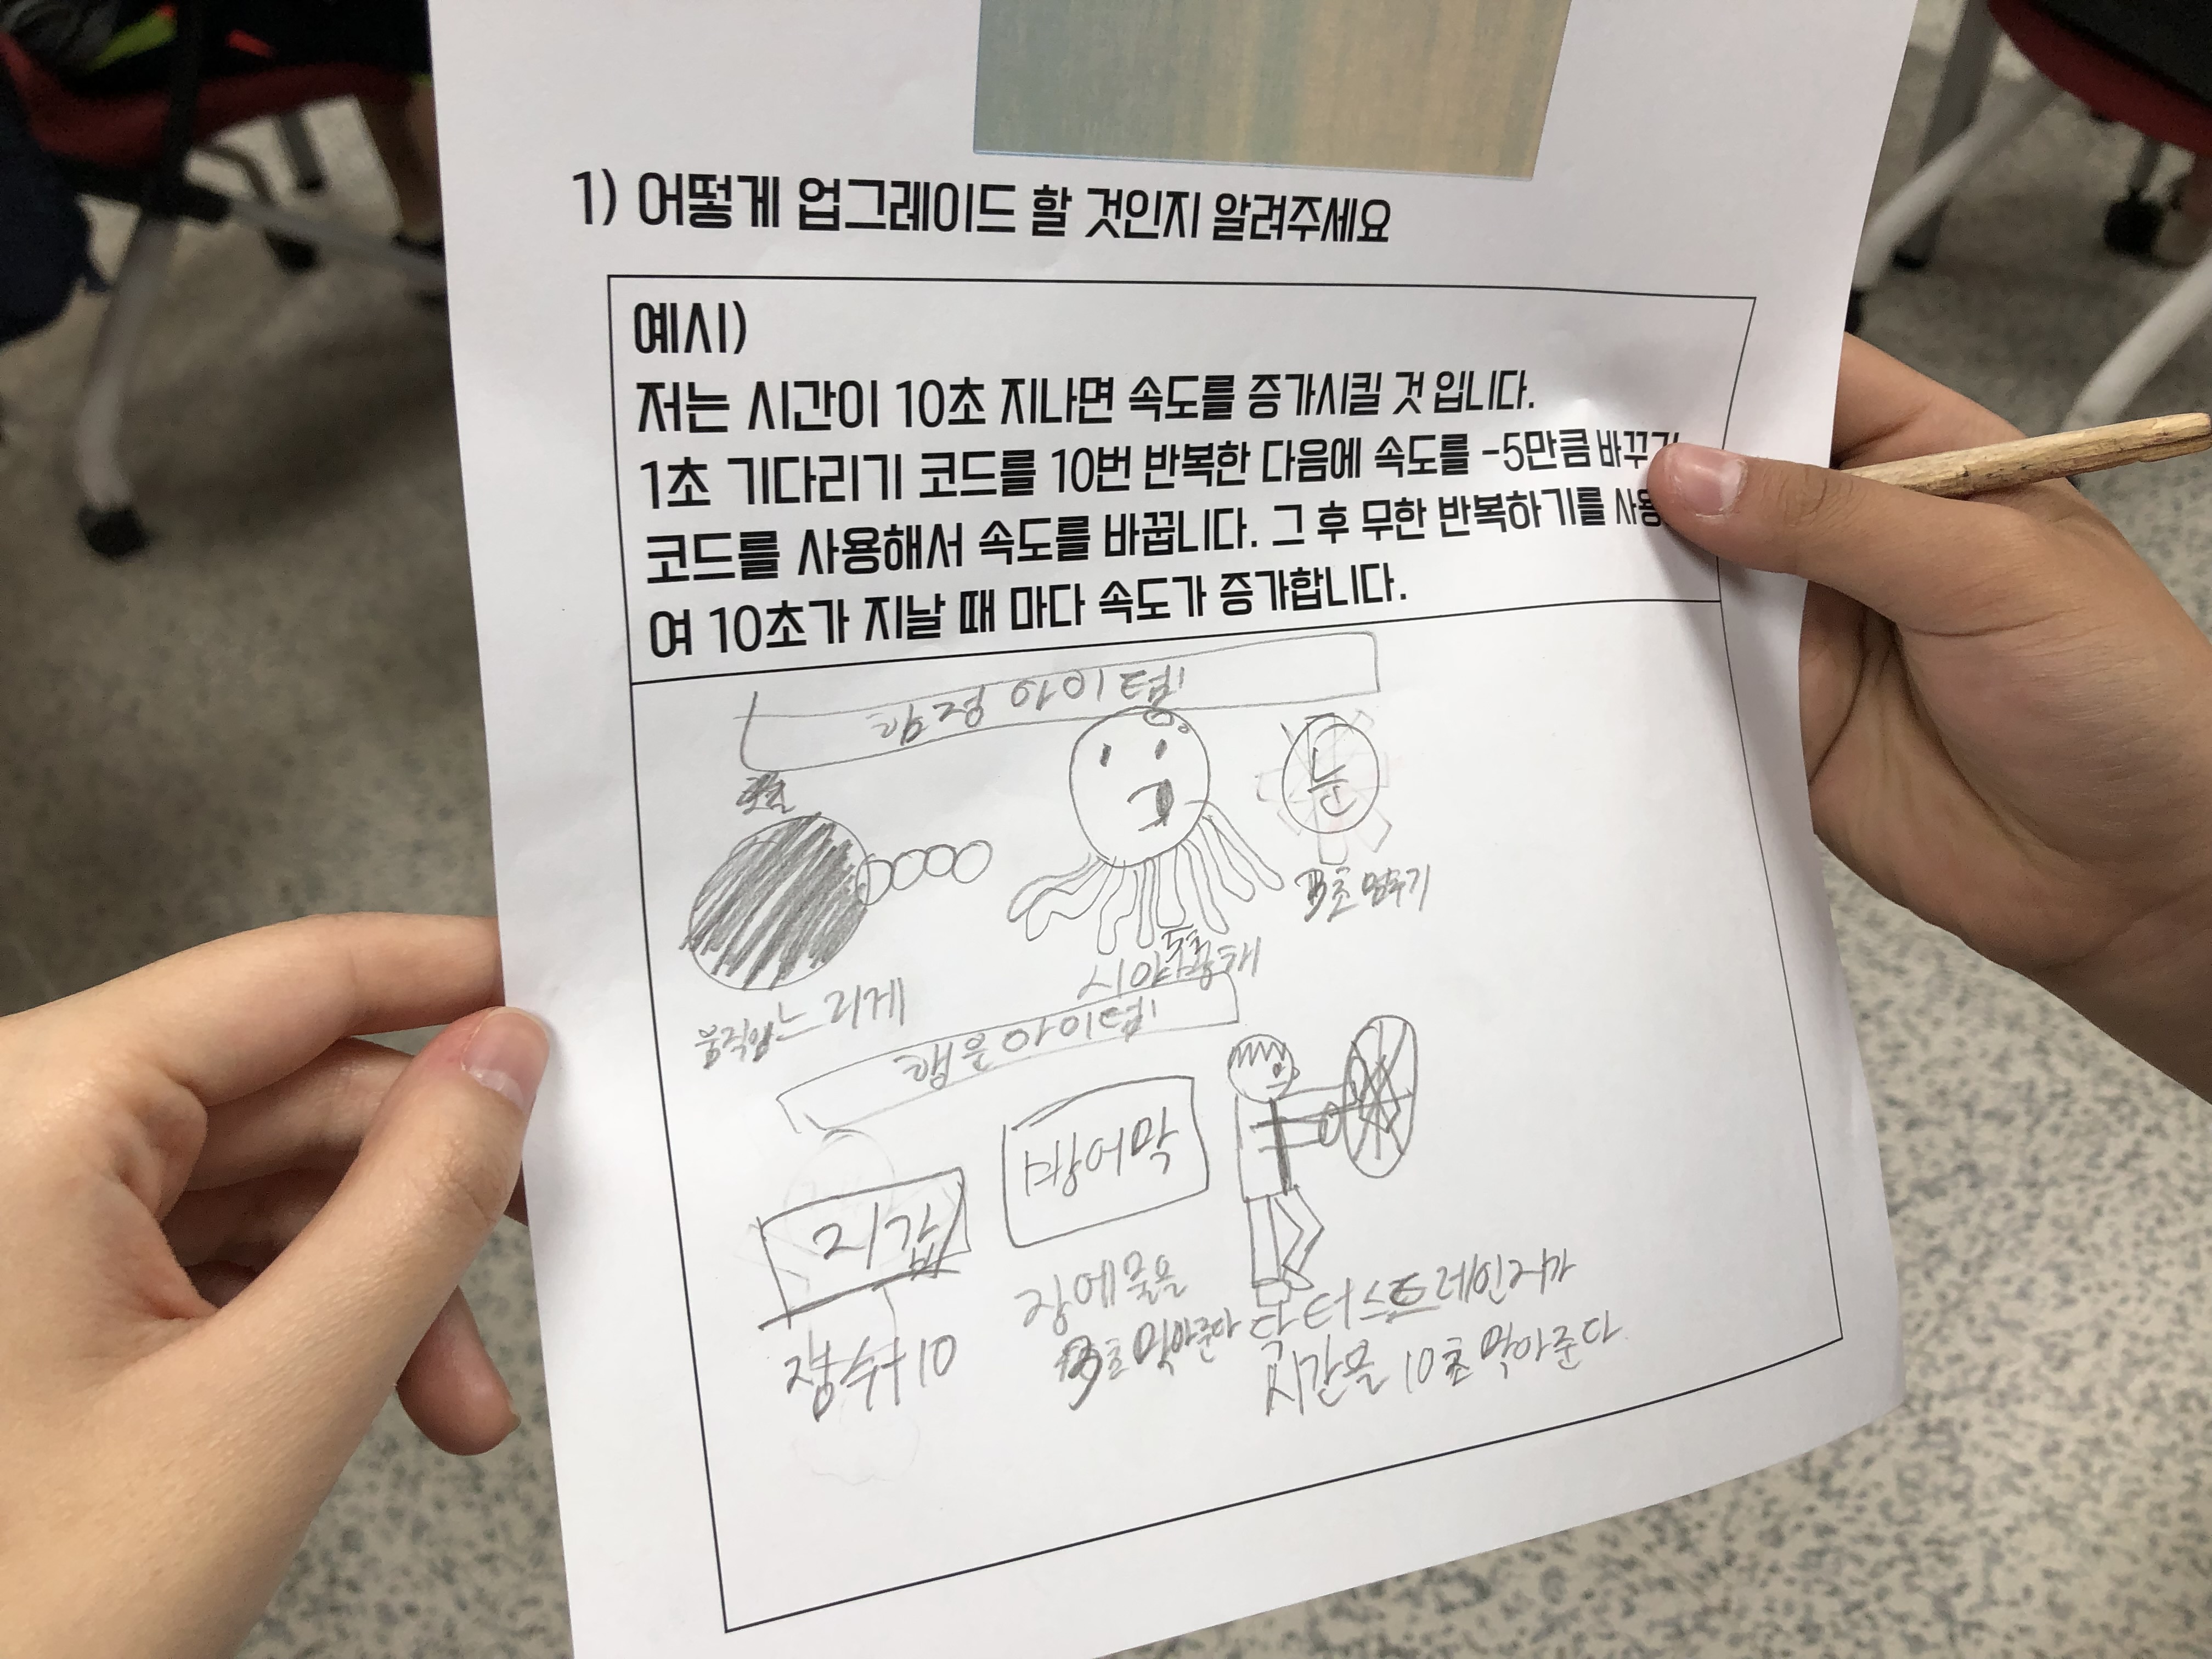 1) 어떻게 업그레이드 할 것인지 알려주세요
예시)
저는 시간이 10초 지나면 속도를 증가시킬 것 입니다.
1초 기다리기 코드를 10번 반복한 다음에 속도를 -5만큼 바꾸기
코드를 사용해서 속도를 바꿉니다. 그 후 무한 반복하기를 사용
여 10초가 지날 때 마다 속도가 증가합니다.
함정 아이템!
눈
3초 멈추기
시야 방해
움직임 느리게
행운 아이템!
지갑
방어막
점수+10
장에물을
3초 막아준다
닥터스트레인지가
시간을 10초 막아준다